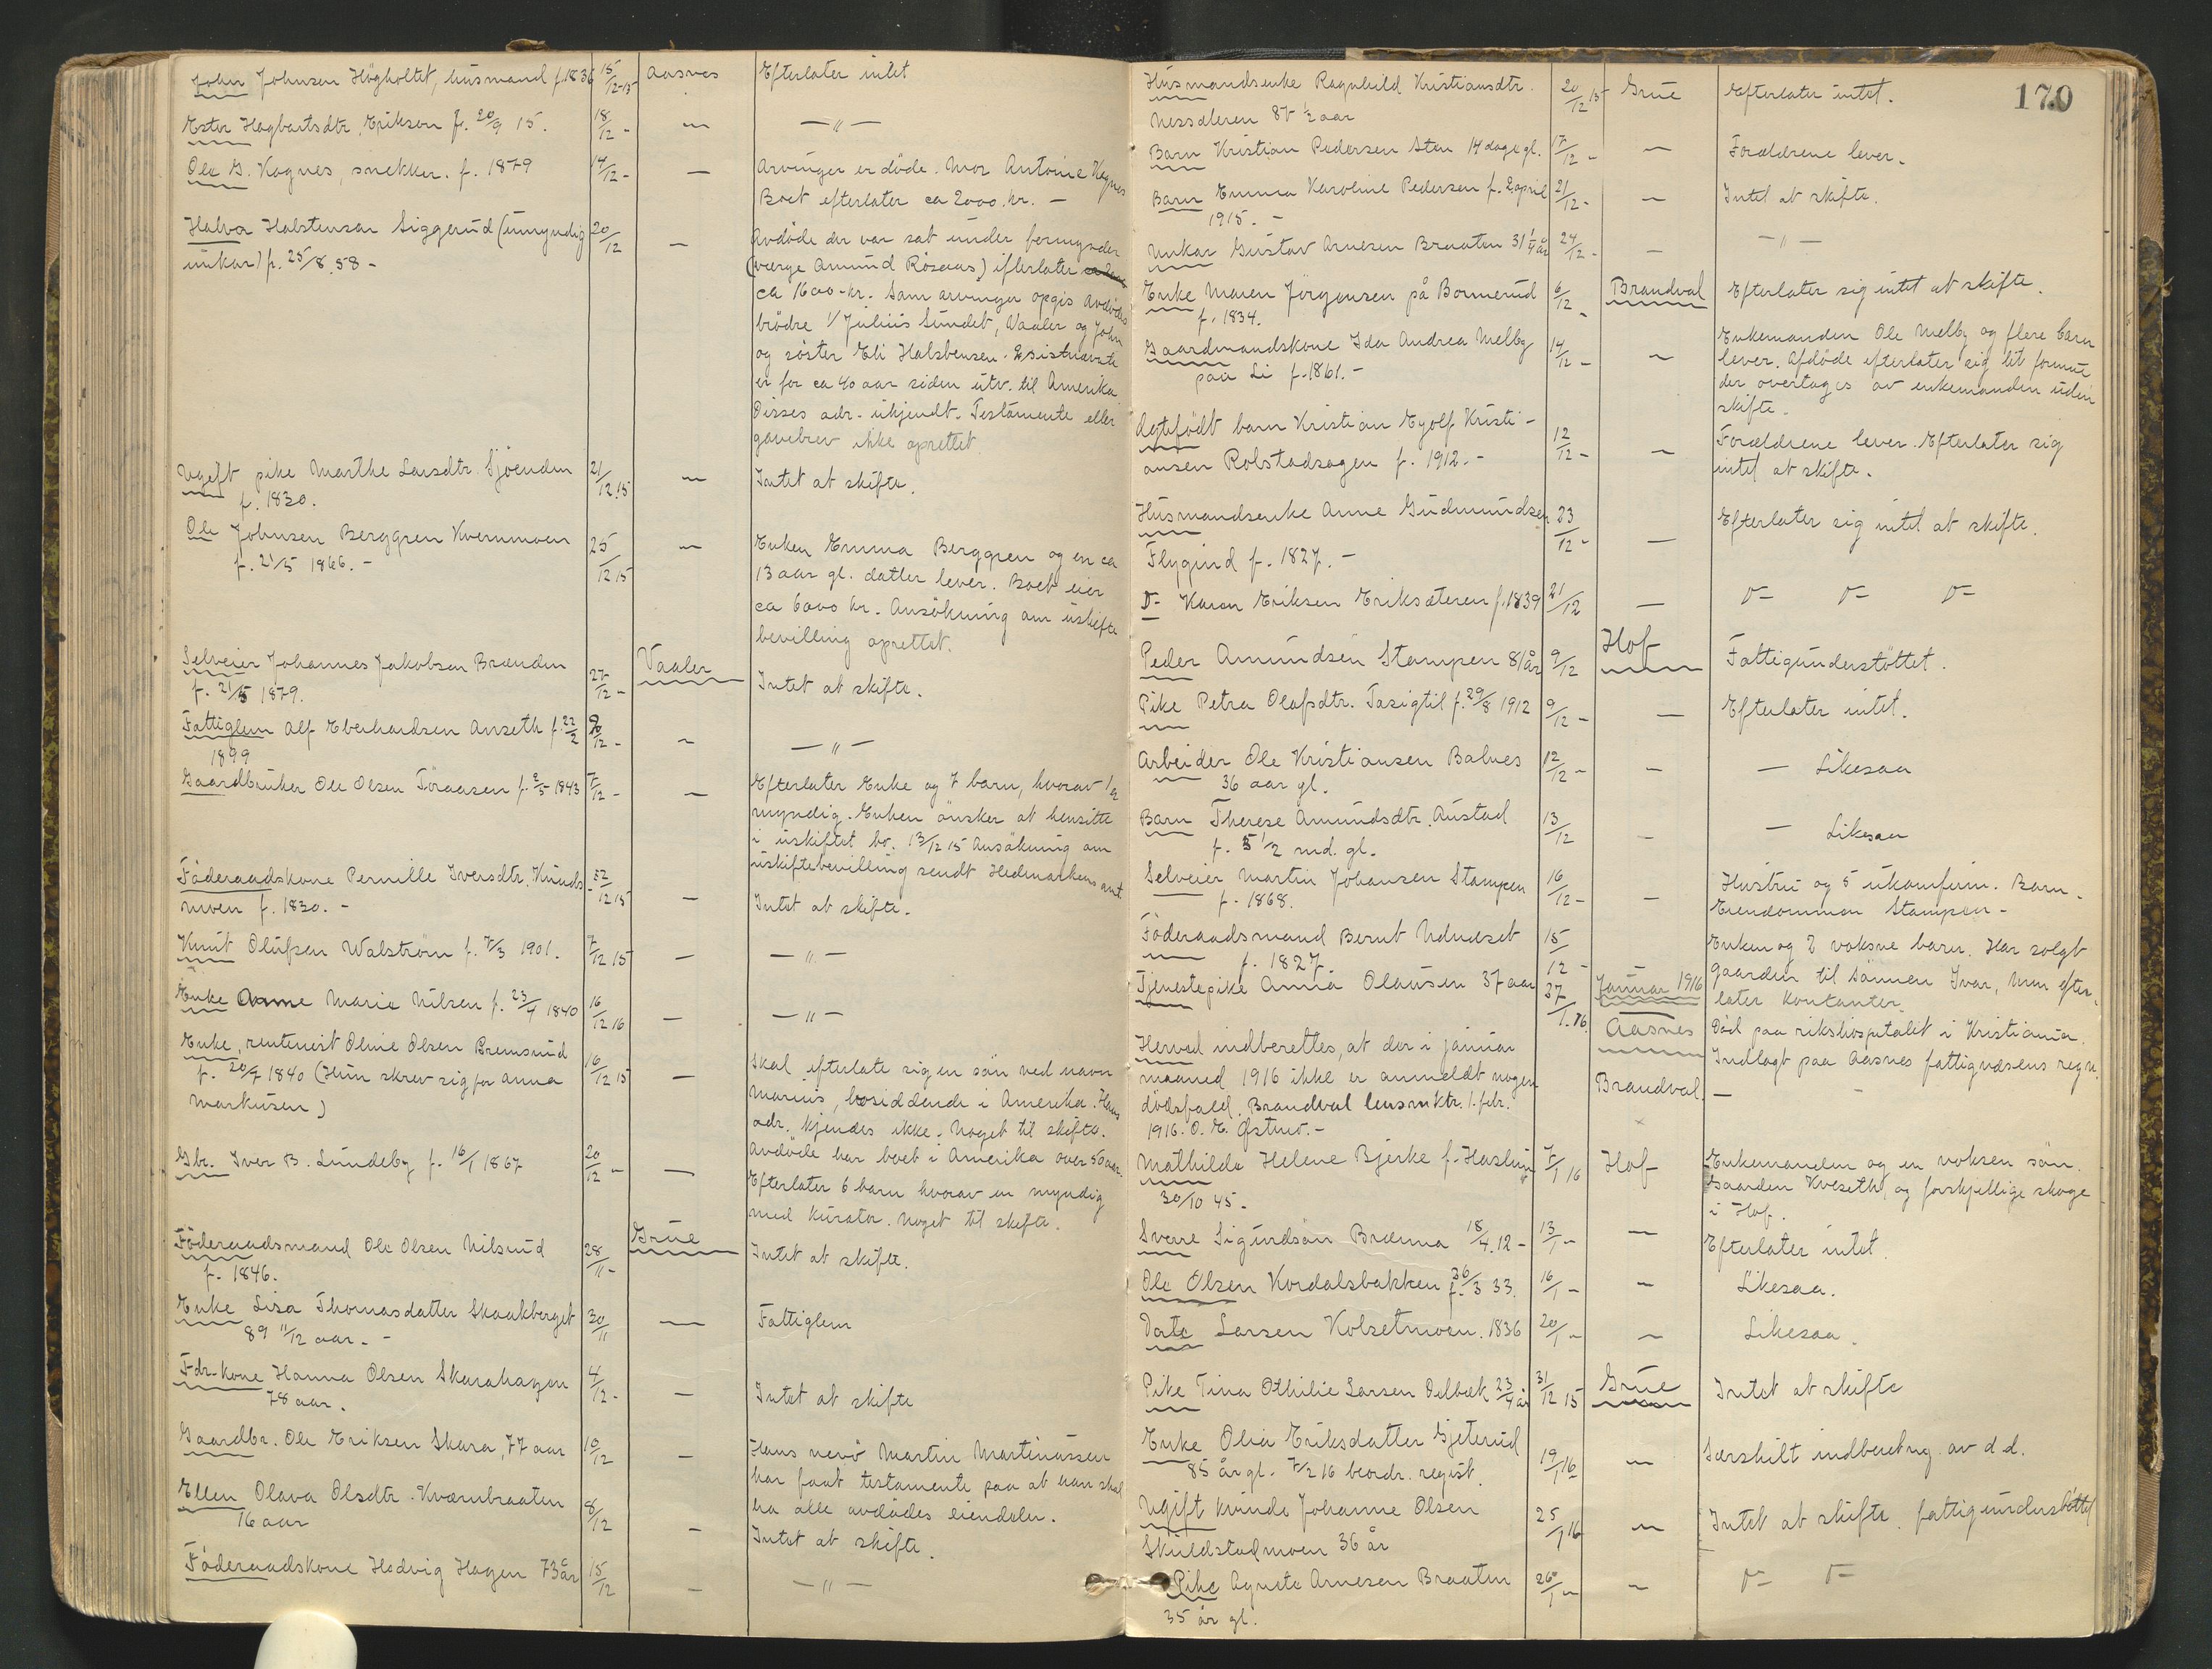 John Johnsen Högholtet, husmand f. 1836 15/12-15 Aasnes Efterlater intet
Ester Hagbartsdtr. Eriksen f. 20/9 15. 18/12 - — — " —
Ole G. Kognes, snekker. f. 1879 14/12 - — Arvinger er döde. Mor Antonie Kognes
Boet efterlater ca 2000 kr. —
Halvor Halstensen Siggerud (umyndig 20/12 — Avdöde der var sat under formynder
unkar) f. 25/8 58 - (værge Amund Rösaas) efterlater
ca 1600 kr. Som arvinger opgis avdödes
brödre 1/ Julius Sundet, Vaaler og John
og söster Eli Halstensen. 2 sistnævnte
er for ca 40 aar siden utv. til Amerika
Disses adr. ukjendt. Testamente eller
gavebrev ikke oprettet.
Ugift pike Marthe Larsdtr. Sjöenden 21/12 15 — Intet at skifte.
f. 1830.
Ole Johnsen Berggren Kvernmoen 25/12 15 — Enken Emma Berggren og en ca
f. 21/5 1866. - 13 aar gl. datter lever. Boet eier
ca 6000 kr. Ansökning om uskifte
bevilling oprettet.
Selveier Johannes Jakobsen Brænden 27/12 - Vaaler Intet at skifte.
f. 21/5 1879.
Fattiglem Alf Eberhardsen Anseth f. 22/2 /12 - — — " —
1899
Gaardbruker Ole Olsen Töraasen f. 2/5 1843 7/12 - — Efterlater Enke og 7 barn, hvorav
myndig. Enken önsker at hensitte
i uskiftet bo. 13/12 15 Ansökning om
uskiftebevilling sendt Hedmarkens amt.
Föderaadskone Pernille Iversdtr. Knuds- /12 15 — Intet at skifte.
moen f. 1830. -
Knut Olufsen Walström f. 7/3 1901. 7/12 15 — — " —
Enke Anne Marie Nilsen f. 23/4 1840 16/12 16 — — " —
Enke, rentenist Oline Olsen Bremsrud 16/12 15 — Skal efterlate sig en sön ved navn
f. 20/7 1840 (Hun skrev sig for Anna Marius, bosiddende i Amerika. Hans
Markusen) adr. kjendes ikke. Noget til skifte.
Avdöde har boet i Amerika over 50 aar.
Gbr. Iver B. Lundeby f. 16/1 1867 20/12 - — Efterlater 6 barn hvorav en myndig
med kurator. Noget til skifte.
Föderaadsmand Ole Olsen Nilsrud 28/11 - Grue Intet at skifte.
f. 1846.
Enke Lisa Thomasdatter Skaakberget 30/11 — Fattiglem
89 11/12 aar. -
Fdr. kone Hanna Olsen Skarahagen 4/12 - — Intet at skifte
78 aar.
Gaardbr. Ole Eriksen Skara, 77 aar 10/12 — Hans nevö Martin Martinussen
har faat testamente paa at han skal
ha alle avdödes eiendeler.
Ellen Olava Olsdtr. Kværnbraaten 8/12 — Intet at skifte.
16 aar
Föderaadskone Hedvig Hagen 73 år 15/12 — — " —
170
Husmandsenke Ragnhild Kristiansdtr. 20/12 15 Grue Efterlater intet.
Nessæteren 87 1/2 aar
Barn Kristian Pedersen Sten 14 dage gl. 17/12 - — Forældrene lever.
Barn Emma Karoline Pedersen f. 2 april 21/12 - — Intet at skifte.
1915. -
Unkar Gustav Arnesen Braaten 31 1/4 år 24/12 - — — " —
Enke Maren Jörgensen på Bonnerud 6/12 - Brandval Efterlater sig intet at skifte.
f. 1834.
Gaardmandskone Ida Andrea Melby 14/12 - — Enkemanden Ole Melby og flere barn
paa Li f. 1861. - lever. Afdöde efterlater sig lit formue
der overtages av enkemanden uden
skifte.
Ægtefödt barn Kristian Eyolf Kristi- 12/12 - — Forældrene lever. Efterlater sig
ansen Rolstadsagen f. 1912. - intet at skifte.
Husmandsenke Anne Gudmundsen 23/12 - — Efterlater sig intet at skifte.
Flygind f. 1827. -
D- Karen Eriksen Eriksæteren f. 1839 21/12 — D- D- D-
Peder Amundsen Stampen 81 år 9/12 Hof Fattigunderstöttet.
Pike Petra Olafsdtr. Tasigtil f. 29/8 1912 9/12 - — Efterlater intet.
Arbeider Ole Kristiansen Balnes 12/12 - — — Likesaa
36 aar gl.
Barn Therese Amundsdtr. Austad 13/12 — — Likesaa
f. 5 1/2 md. gl.
Selveier Martin Johansen Stampen 16/12 - — Hustru og 5 ukonfirm. Barn.
f. 1868. Eiendommen Stampen -
Föderaadsmand Bernt Udnæset 15/12 - — Enken og 2 voksne barn. Har solgt
f. 1827. gaarden til sönnen Ivar, men efter-
later kontanter.
Tjenestepike Anna Olausen 37 aar 27/1.16 Januar 1916
Aasnes Död paa rikshospitalet i Kristiania.
Indlagt paa Aasnes fattigvæsens regn.
Herved indberettes, at der i januar Brandval —
maaned 1916 ikke er anmeldt nogen
dödsfald. Brandval lensmktr. 1. febr.
1916. O. E. Østmo. -
Mathilde Helene Bjerke f. Haslum 7/1 16 Hof Enkemanden og en voksen sön.
30/10 45. Gaarden Kveseth, og forskjellige skoge
i Hof.
Sverre Sigurdsön Brænna 18/4. 12 - 13/1 - — Efterlater intet.
Ole Olsen Kordalsbakken f. 26/3 33. 16/1 - — Likesaa.
Larsen Kolsetmoen. 1836 20/1 - — Likesaa.
Pike Tina Othilie Larsen Delbæk 23/4 år 31/12 15 Grue Intet at skifte
Enke Olia Eriksdatter Gjeterud 19/1 16 — Særskilt indberetng. av d.d.
85 år gl. 7/2 16 beordr. regist.
Ugift kvinde Johanne Olsen 25/1 16 — Intet at skifte. fattigunderstöttet
Skuldstadmoen 36 år
Pike Agnete Arnesen Braaten 26/1 - — D- D-
35 år gl.